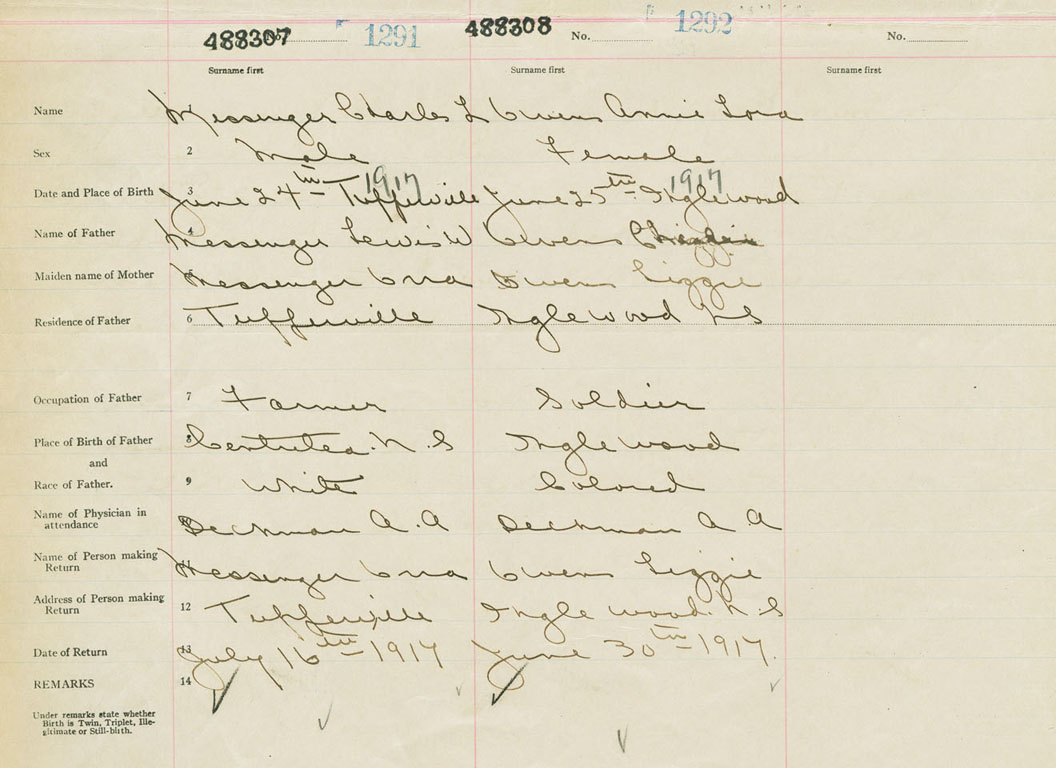 488307 1291 488308 No. 1292 No.
Surname first Surname first Surname first
Name 1 Messenger Charles L Owens Annie Lora
Sex 2 Male Female
1917 1917
Date and Place of Birth 3 June 24th Tupperville June 25th Inglewood
Name of Father 4 Messenger Lewis W Owens
Maiden name of Mother 5 Messenger Ena Owens Lizzie
Residence of Father 6 Tupperville Inglewood N S
Occupation of Father 7 Farmer Soldier
Place of Birth of Father 8 N. S Inglewood
and
Race of Father. 9 White Colored
Name of Physician in
attendance Deckman A. A Deckman A A
Name of Person making
Return 11 Messenger Ena Owens Lizzie
Address of Person making
Return 12 Tupperville Inglewood. N. S
Date of Return 13 July 16th 1917 June 30th 1917.
REMARKS 14
Under remarks state whether
Birth is Twin, Triplet, Ille-
gitimate or Still-birth.